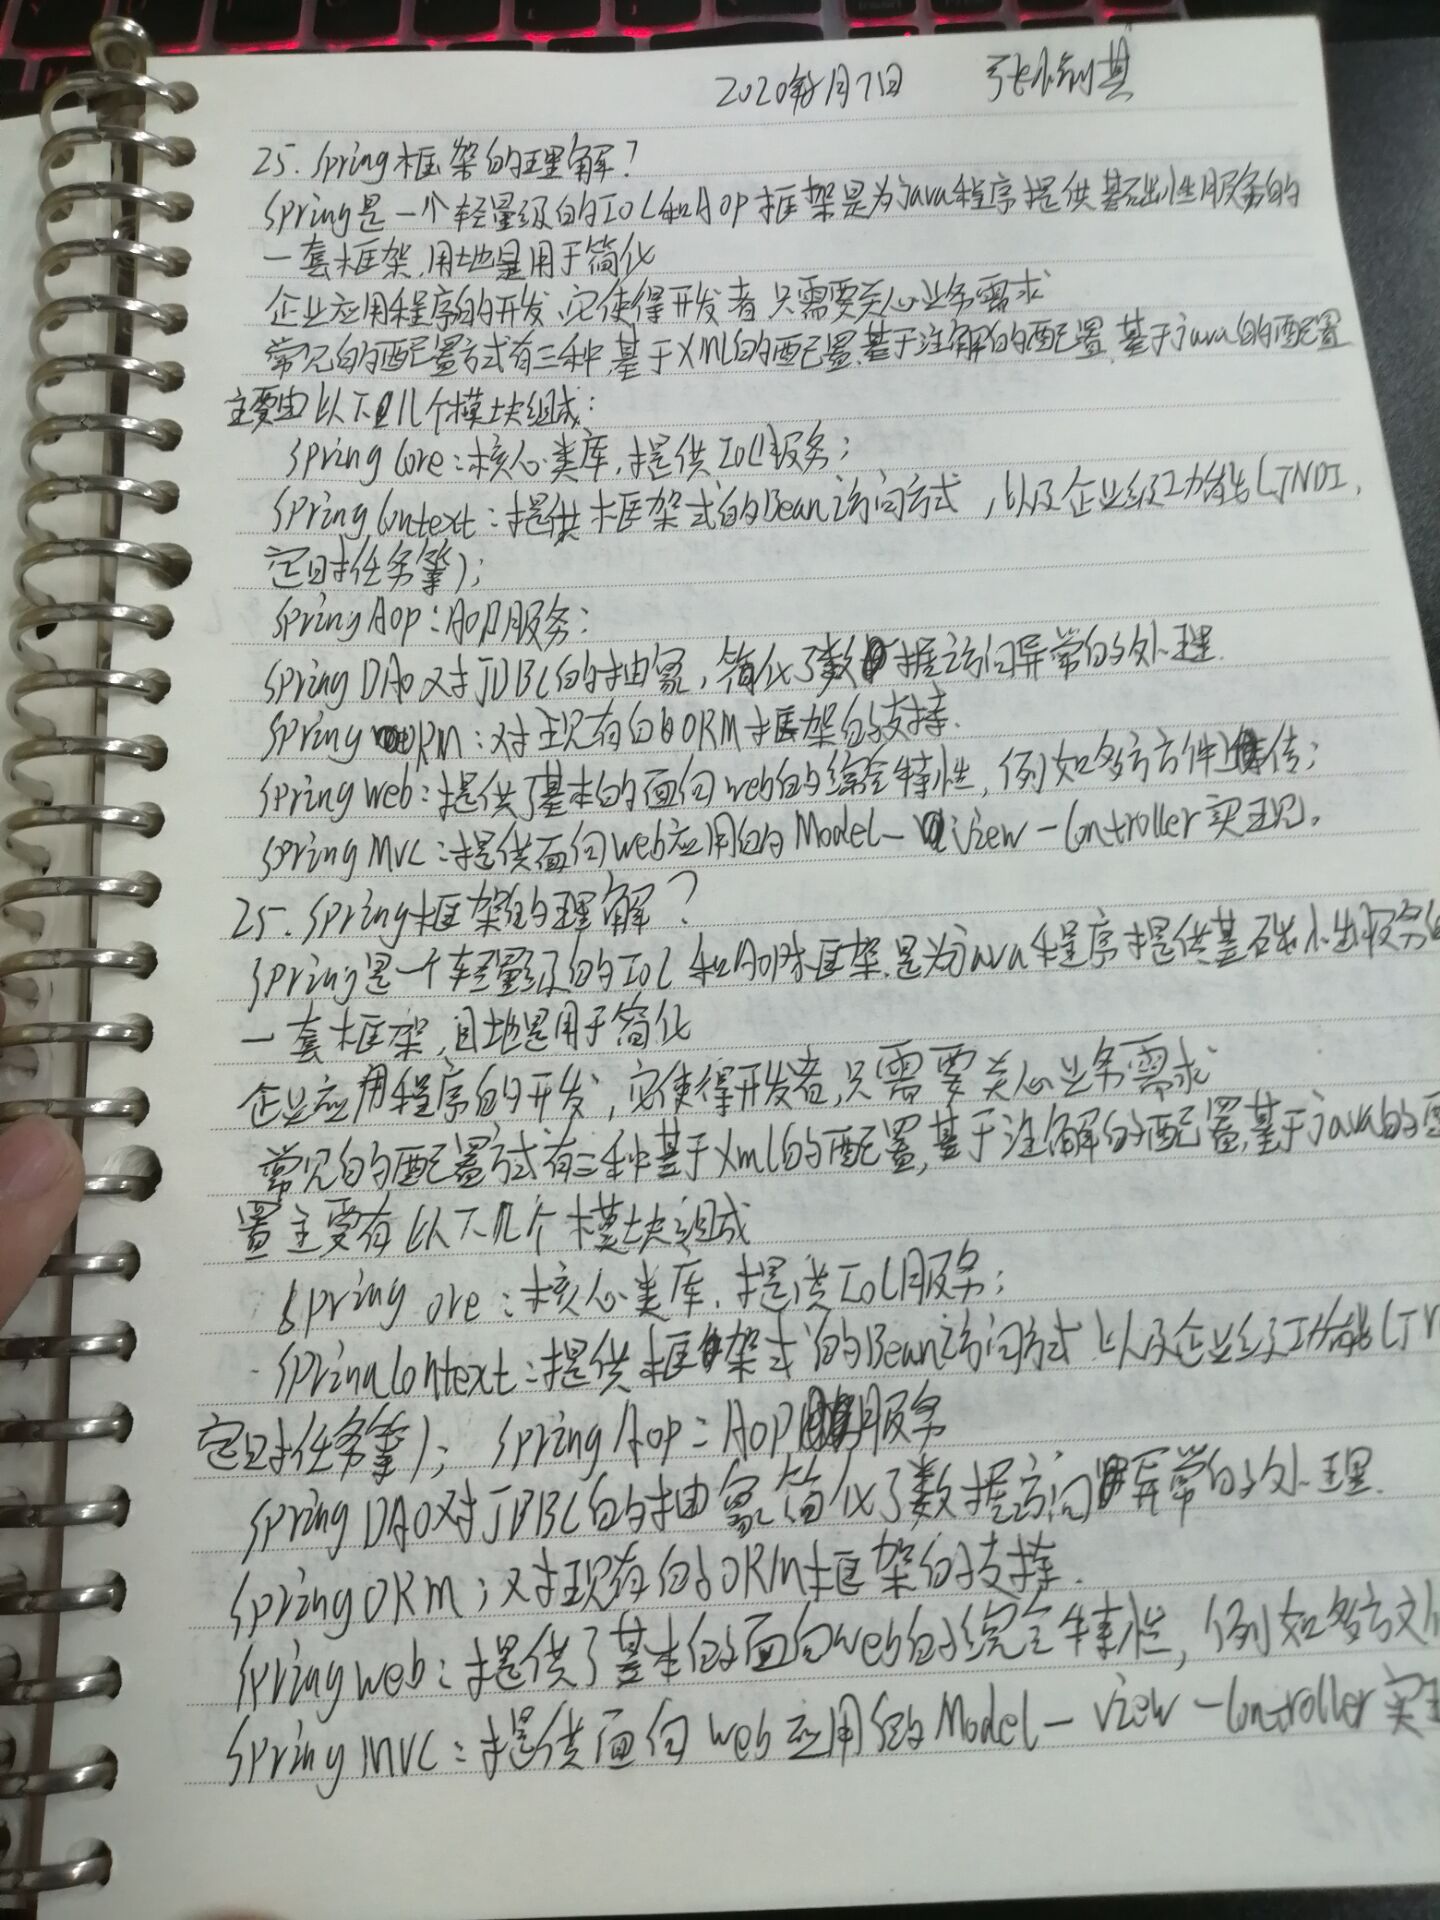 2020年 月7日 张 其
25.Spring框架的理解?
Spring是一个轻量级的IOC和AOP框架是为java程序提供基础性服务的
一套框架,用地是用于简化
企业应用程序的开发,它使得开发者只需要关心业务需求
常见的配置方式有三种,基于XML的配置.基于注解的配置,基于java的配置
主要由以下几个模块组成:
Spring Core:核心类库,提供IOC服务;
Spring Context:提供框架式的Bean访问方式,以及企业级功能(JNDI,
定时任务等);
Spring AOP:AOP服务;
Spring DAO对JDBC的抽象,简化了数据访问异常的处理.
Spring ORM:对现有的ORM框架的支持.
Spring Web:提供了基本的面向Web的综合特性,例如多方方件上传;
Spring MVC:提供面向Web应用的Model-View-Controller实现.
25.Spring框架的理解?
Spring是一个轻量级的IOC和AOP框架,是为java程序提供基础性服务的
一套框架,目地是用于简化
企业应用程序的开发,它使得开发者,只需要关心业务需求
常见的配置方式有三种基于Xml的配置,基于注解的配置,基于java的配
置主要有以下几个模块组成
Spring ore:核心类库,提供IOC服务;
Spring Context:提供框架式的Bean访问方式以及企业级功能(JN
定时任务等);Spring AOP:AOP服务
Spring DAO对JDBC的抽象简化了数据访问异常的处理.
Spring ORM:对现有的ORM框架的支持.
Spring Web:提供了基本的面向Web的综合特性,例如多方文件
Spring MVC:提供面向Web应用的Model-View-Controller实现